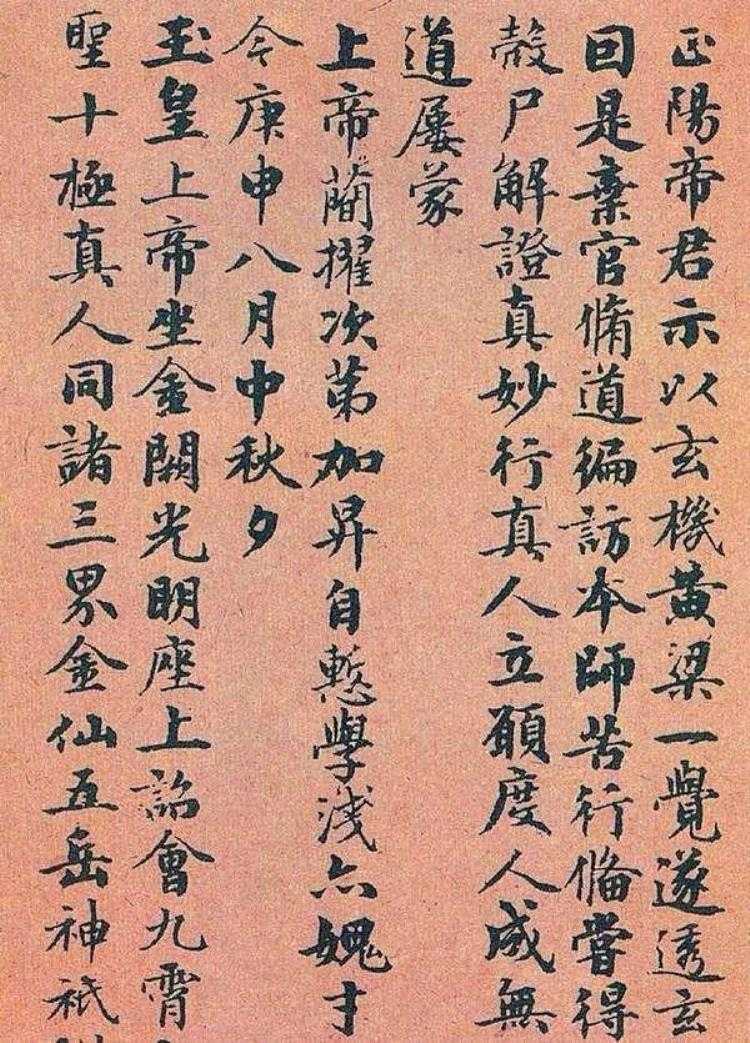 正陽帝君示以玄機黄梁一覺遂透玄
回是棄官脩道徧訪本師苦行備嘗得
殻尸解證真妙行真人立願度人成無
道屢蒙
上帝蕳擢次第加昇自慙學淺亦媿才
今庚申八月中秋夕
玉皇上帝坐金闕光明座上詔會九霄
聖十極真人同諸三界金仙五岳神祇